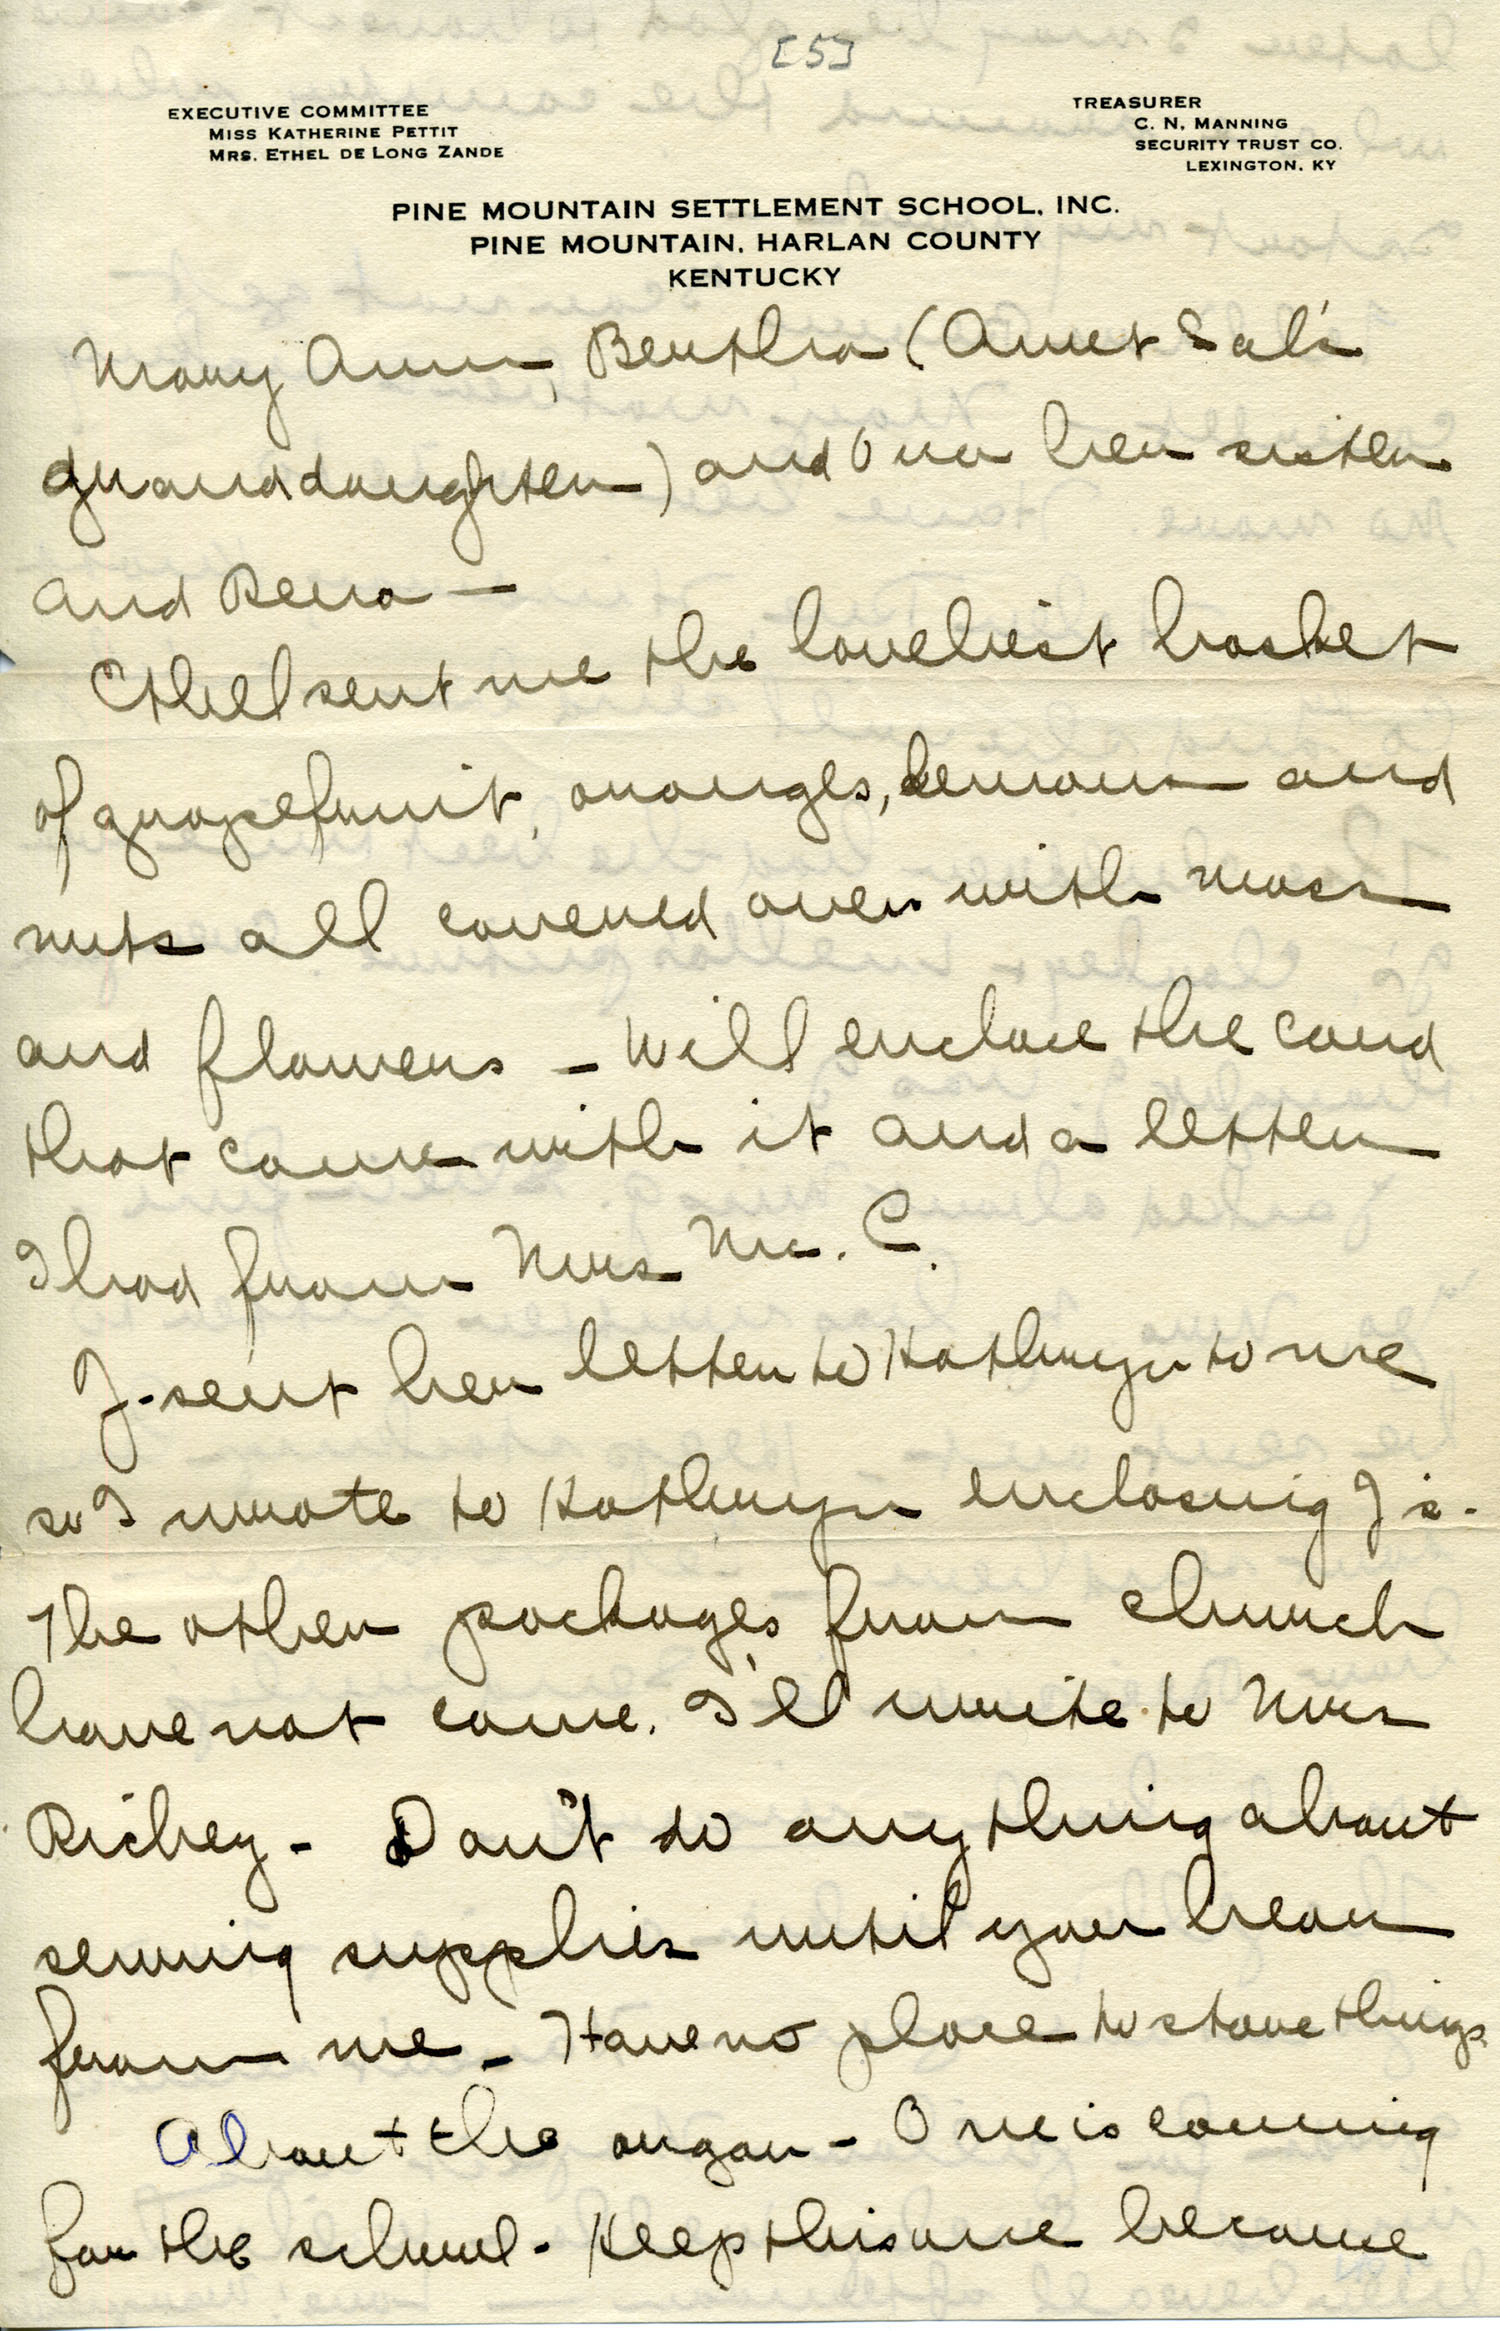 [5]
EXECUTIVE COMMITTEE
MISS KATHERINE PETTIT
MRS. ETHEL DE LONG ZANDE
TREASURER
C. N. MANNING
SECURITY TRUST CO.
LEXINGTON. KY
PINE MOUNTAIN SETTLEMENT SCHOOL, INC.
PINE MOUNTAIN, HARLAN COUNTY
KENTUCKY
Mary Ann, Bertha (Aunt Sal's
granddaughter) and Ora her sister
and Rena —
Ethel sent me the loveliest basket
of grapefruit, oranges, lemons and
nuts all covered over with moss
and flowers – Will enclose the card
that came with it and a letter
I had from Mrs Mc. C.
J. sent her letter to Kathryn to me
so I wrote to Kathryn enclosing J's.
The other packages from church
have not come. I'll write to Mrs
Richey – Don't do anything about
sewing supplies until you hear
from me – Have no place to store things
About the organ – One is coming
for the school. Keep this one because